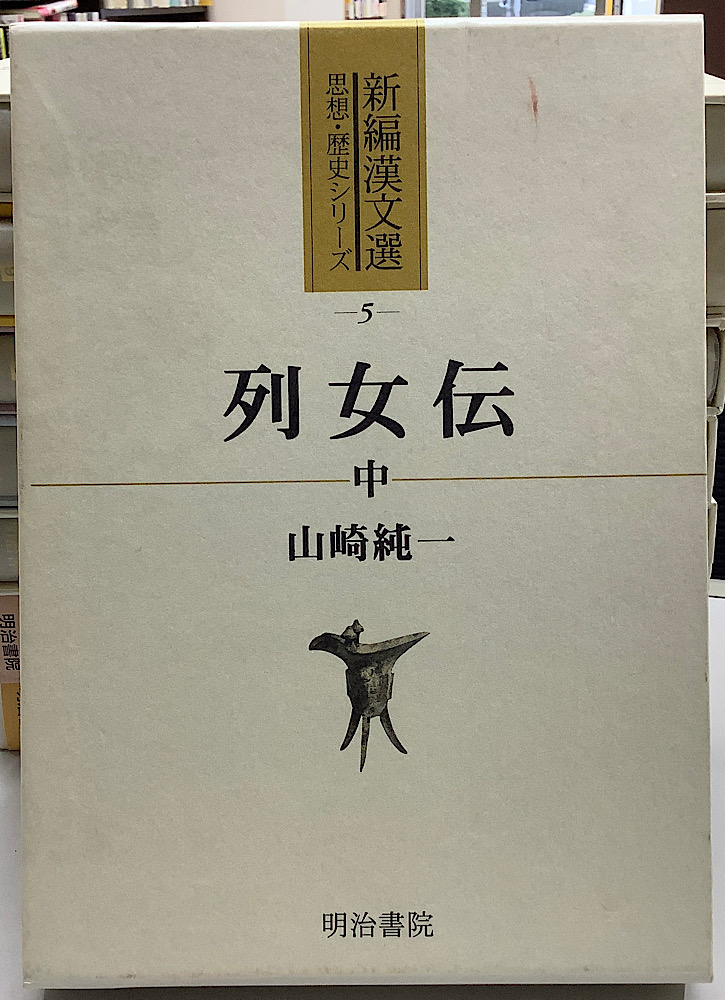 新編漢文選
思想・歴史シリーズ
—5—
列女伝
中
山崎純一
明治書院
明治書院